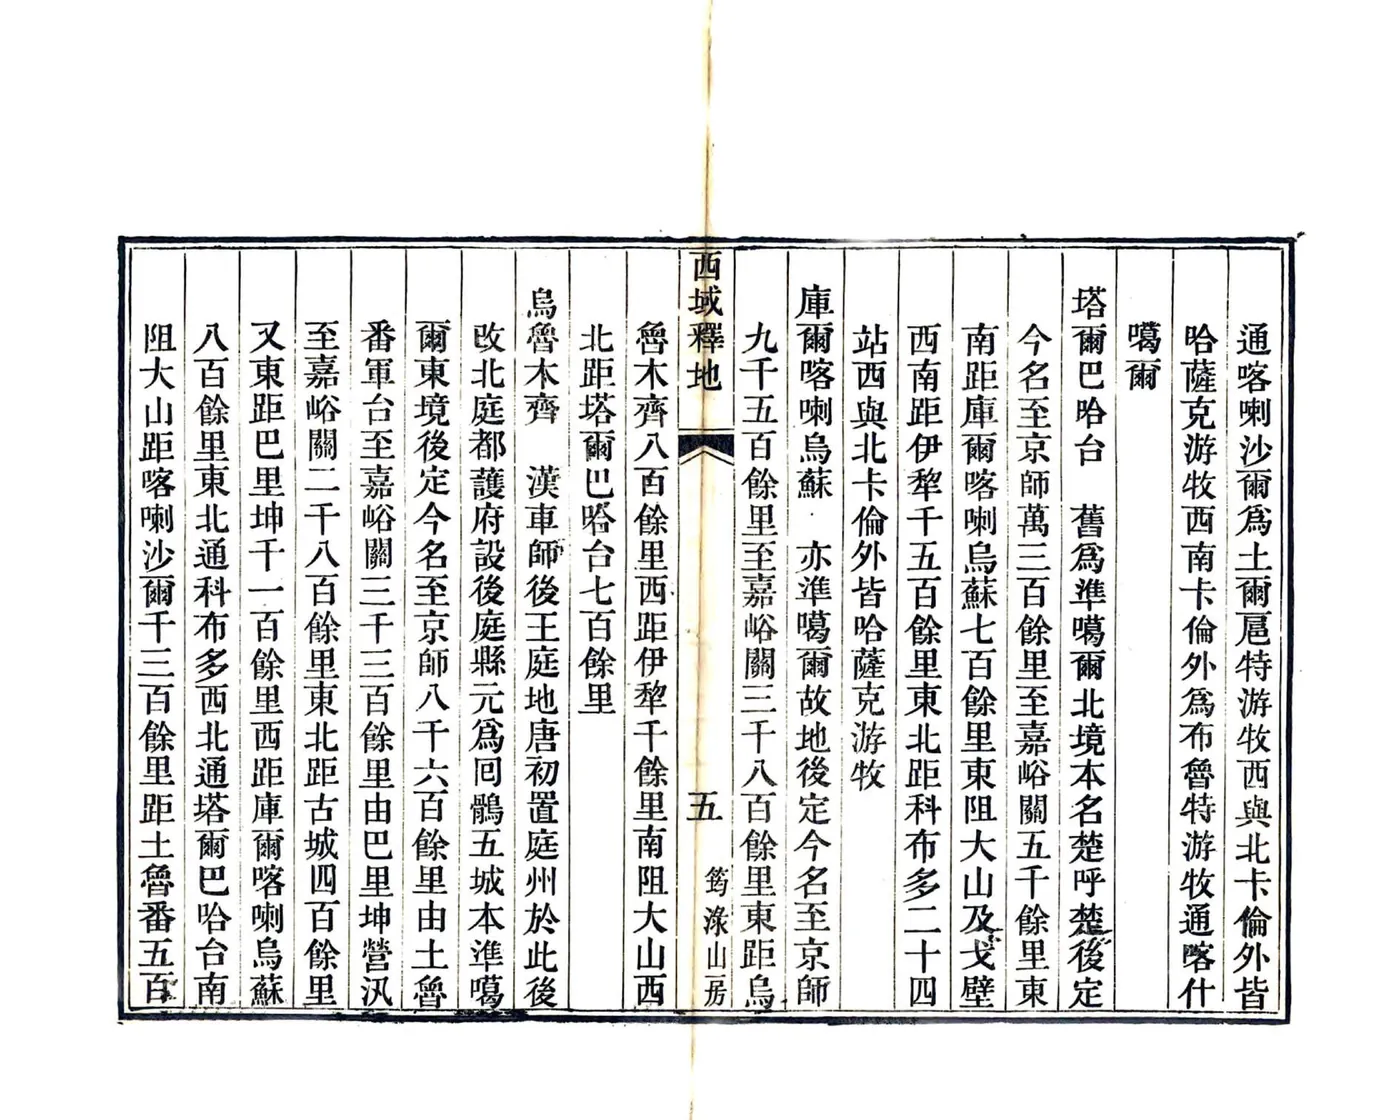 通喀喇沙爾爲土爾扈特游牧西與北卡倫外皆
哈薩克游牧西南卡倫外爲布魯特游牧通喀什
噶爾
塔爾巴哈台　舊爲準噶爾北境本名楚呼楚後定
今名至京師萬三百餘里至嘉峪關五千餘里東
南距庫爾喀喇烏蘇七百餘里東阻大山及戈壁
西南距伊犂千五百餘里東北距科布多二十四
站西與北卡倫外皆哈薩克游牧
庫爾喀喇烏蘇　亦準噶爾故地後定今名至京師
九千五百餘里至嘉峪關三千八百餘里東距烏
西域釋地
五
筠淥山房
魯木齊八百餘里西距伊犂千餘里南阻大山西
北距塔爾巴哈台七百餘里
烏魯木齊　漢車師後王庭地唐初置庭州於此後
改北庭都護府設後庭縣元爲回鶻五城本準噶
爾東境後定今名至京師八千六百餘里由土魯
番軍台至嘉峪關三千三百餘里由巴里坤營汛
至嘉峪關二千八百餘里東北距古城四百餘里
又東距巴里坤千一百餘里西距庫爾喀喇烏蘇
八百餘里東北通科布多西北通塔爾巴哈台南
阻大山距喀喇沙爾千三百餘里距土魯番五百